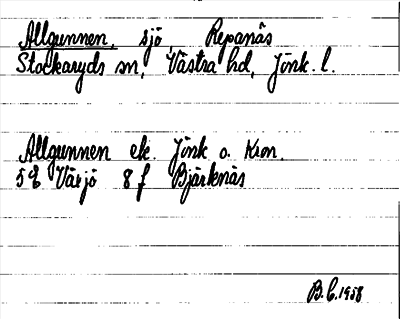 Allgunnen, sjö, Repanäs
Stockaryds sn, Västra hd, Jönk. l.
Allgunnen ek. Jönk o. Kron.
5 E Växjö 8 f Bjärknäs
B.C. 1958